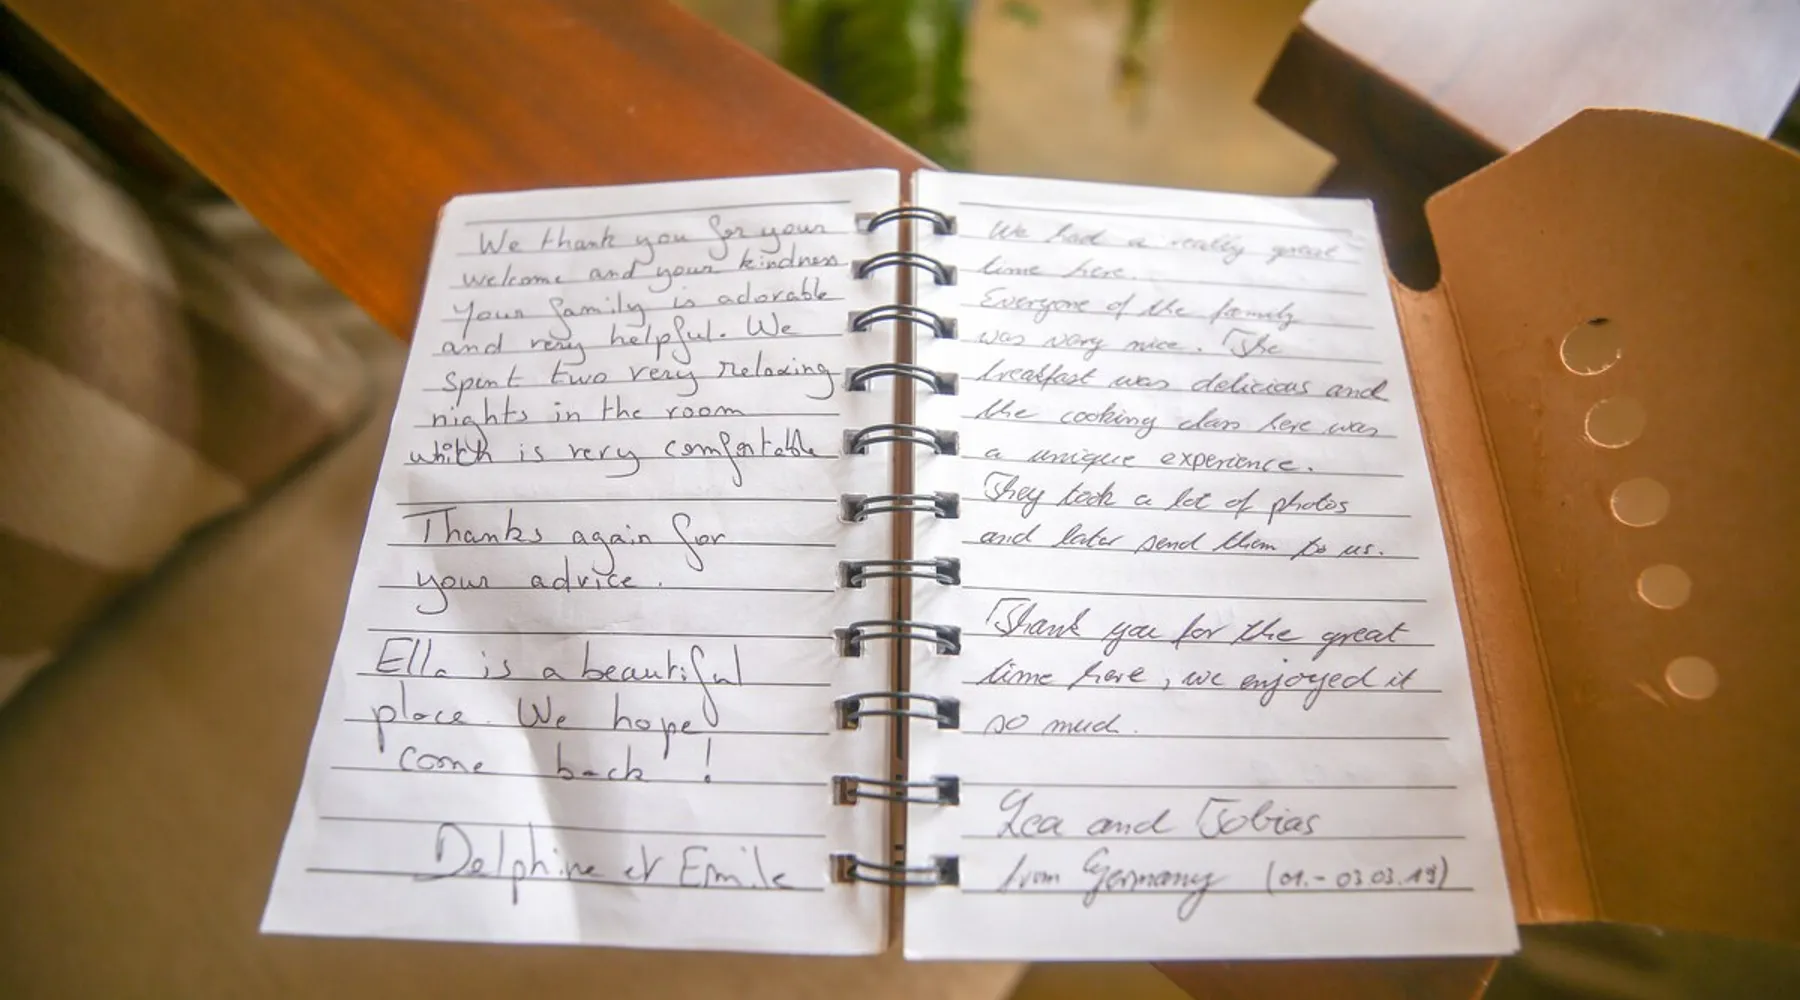 We thank you for your
welcome and your kindness
Your family is adorable
and very helpful. We
spent two very relaxing
nights in the room
which is very comfortable
Thanks again for
your advice.
Ella is a beautiful
place. We hope
come back !
Delphine et Emile
We had a really great
time here.
Everyone of the family
was very nice. The
breakfast was delicious and
the cooking class here was
a unique experience.
They took a lot of photos
and later send them to us.
Thank you for the great
time here, we enjoyed it
so much.
Lea and Tobias
from Germany (01.-03.03.19)